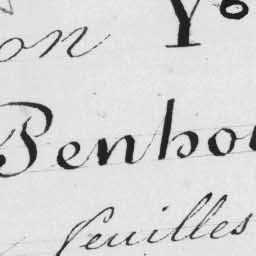 on Yo
Penho
feuilles